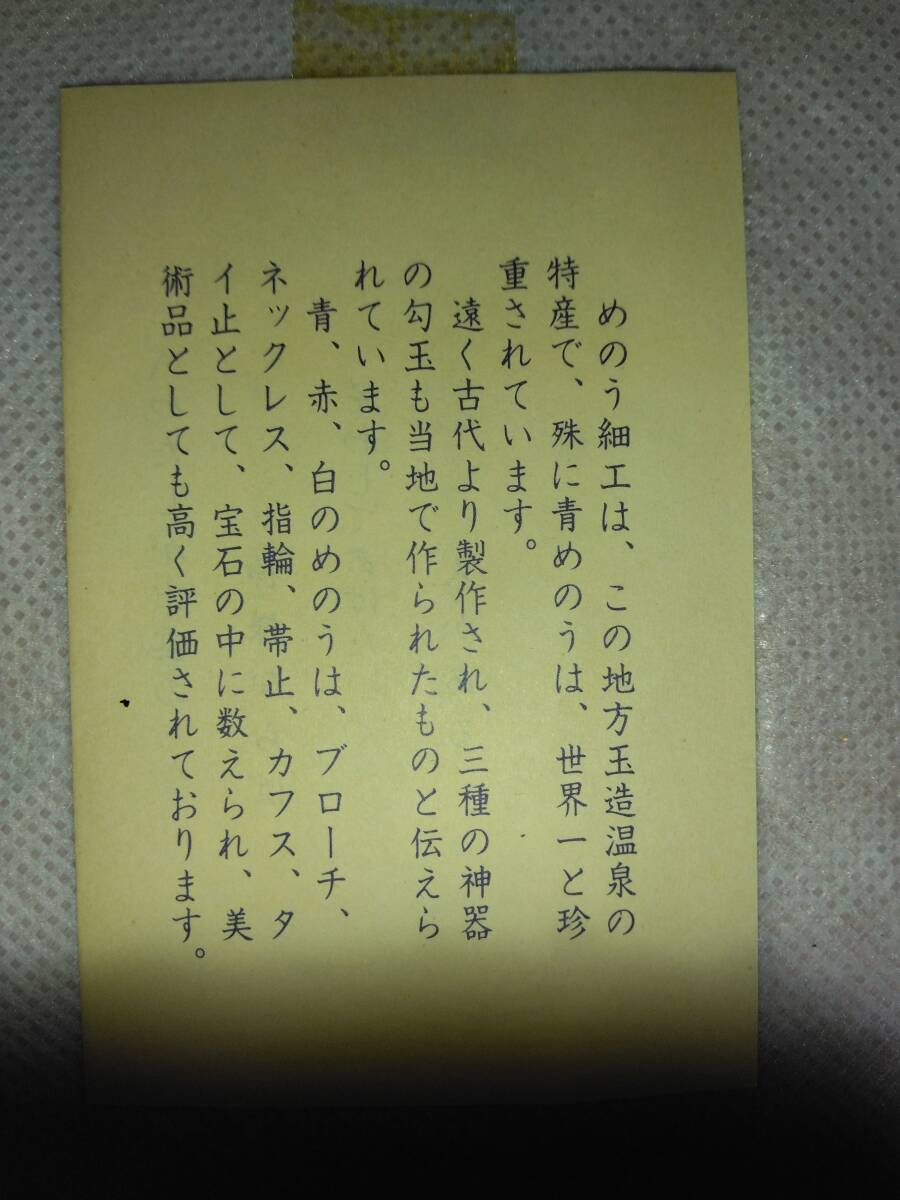 めのう細工は、この地方玉造温泉の
特産で、殊に青めのうは、世界一と珍
重されています。
遠く古代より製作され、三種の神器
の勾玉も当地で作られたものと伝えら
れています。
青、赤、白のめのうは、ブローチ、
ネックレス、指輪、帯止、カフス、タ
イ止として、宝石の中に数えられ、美
術品としても高く評価されております。